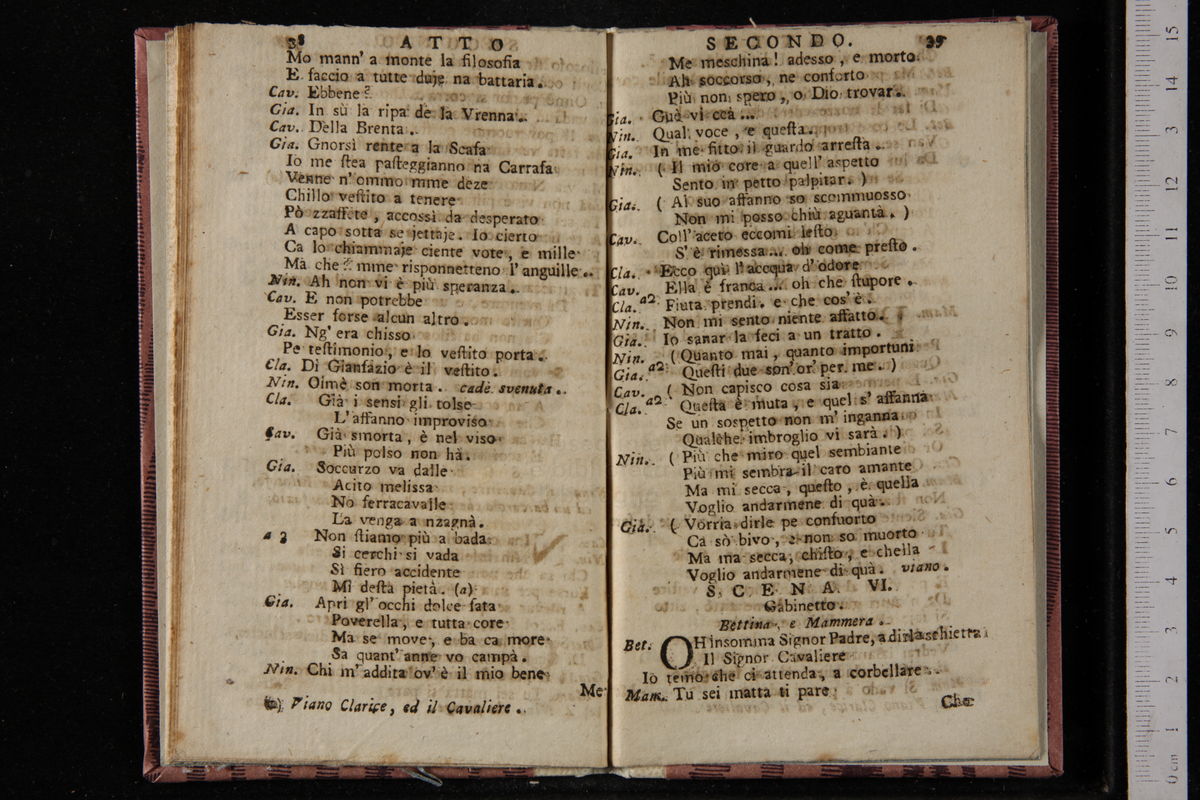 38 ATTO
Mo mann' a monte la filosofia
E faccio a tutte duje na battaria.
Cav. Ebbene?
Gia. In sù la ripa de la Vrenna.
Cav. Della Brenta.
Gia. Gnorsì rente a la Scafa
Io me ſtea paſteggianno na Carrafa
Venne n' ommo mme deze
Chillo veſtito a tenere
Pò zzaffete, accossì da desperato
A capo sotta se jettaje. Io cierto
Ca lo chiammaje ciente vote, e mille
Mà che? mme risponnetteno l' anguille.
Nin. Ah non vi è più speranza.
Cav. E non potrebbe
Esser forse alcun altro.
Gia. Ng' era chisso
Pe teſtimonio, e lo veſtito porta.
Cla. Di Gianfazio è il veſtito.
Nin. Oimè son morta. cade svenuta.
Cla. Già i sensi gli tolse
L' affanno improviso
Cav. Già smorta, è nel viso
Più polso non hà.
Gia. Soccurzo va dalle
Acito melissa
No ferracavalle
La venga a nzagnà.
a 3 Non ſtiamo più a bada
Si cerchi si vada
Sì fiero accidente
Mi deſta pietà. (a)
Gia. Apri gl' occhi dolce fata
Poverella, e tutta core
Ma se move, e ba ca more
Sa quant' anne vo campà.
Nin. Chi m' addita ov' è il mio bene
Me
(a) Viano Clarice, ed il Cavaliere.
SECONDO. 39
Me meschina! adesso, e morto
Ah soccorso, ne conforto
Più non spero, o Dio trovar.
Gia. Guè vi ccà ...
Nin. Qual voce, e queſta.
Gia. In me fitto il guardo arreſta.
Nin. ( Il mio core a quell' aspetto
Sento in petto palpitar. )
Gia. ( Al suo affanno so scommuosso
Non mi posso chiù aguantà. )
Cav. Coll' aceto eccomi leſto
S' è rimessa ... oh come preſto.
Cla. Ecco quì l' accqua d' odore
Cav. Ella è franca ... oh che ſtupore.
Cla. a2 Fiuta prendi. e che cos' è.
Nin. Non mi sento niente affatto.
Gia. Io sanar la feci a un tratto.
Nin. ( Quanto mai, quanto importuni
Gia. a2 Queſti due son' or' per me. )
Cav. ( Non capisco cosa sia
Cla. a2 Queſta è muta, e quel s' affanna
Se un sospetto non m' inganna
Qualche imbroglio vi sarà. )
Nin. ( Più che miro quel sembiante
Più mi sembra il caro amante
Ma mi secca, queſto, è quella
Voglio andarmene di quà.
Gia. ( Vorria dirle pe confuorto
Ca sò bivo, e non so muorto
Ma ma secca, chiſto, e chella
Voglio andarmene di quà. viano.
SCENA VI.
Gabinetto.
Bettina, e Mammera.
Bet. OH insomma Signor Padre, a dirla schietta
Il Signor Cavaliere
Io temo che ci attenda, a corbellare.
Mam. Tu sei matta ti pare
Che